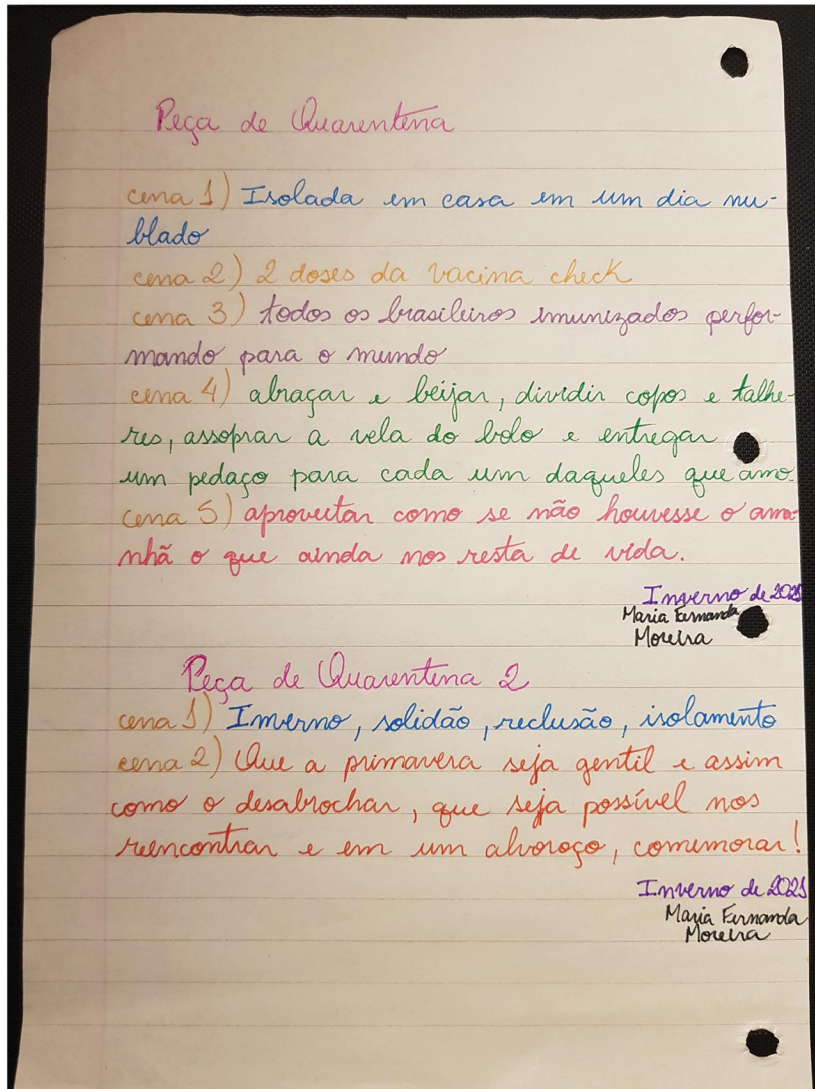 Peça de Quarentena
cena 1) Isolada em casa em um dia nu-
blado
cena 2) 2 doses da vacina check
cena 3) todos os brasileiros imunizados perfor-
mando para o mundo
cena 4) abraçar e beijar, dividir copos e talhe-
res, assoprar a vela do bolo e entregar
um pedaço para cada um daqueles que amo.
cena 5) aproveitar como se não houvesse o ama-
nhã o que ainda nos resta de vida.
Inverno de 2021
Maria Fernanda
Moreira
Peça de Quarentena 2
cena 1) Inverno, solidão, reclusão, isolamento
cena 2) Que a primavera seja gentil e assim
como o desabrochar, que seja possível nos
reencontrar e em um alvoroço, comemorar!
Inverno de 2021
Maria Fernanda
Moreira